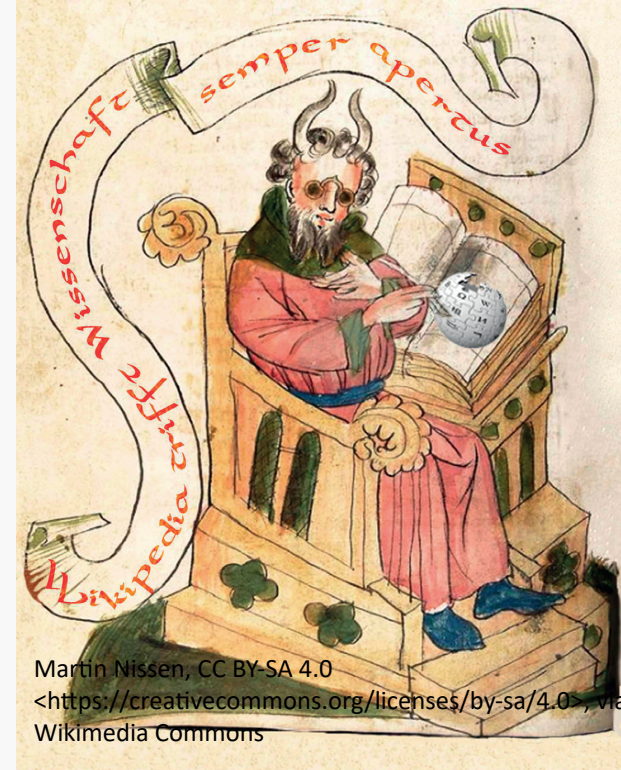 Wikipedia trifft Wissenschaft
semper apertus
Martin Nissen, CC BY-SA 4.0
<https://creativecommons.org/licenses/by-sa/4.0>, via
Wikimedia Commons